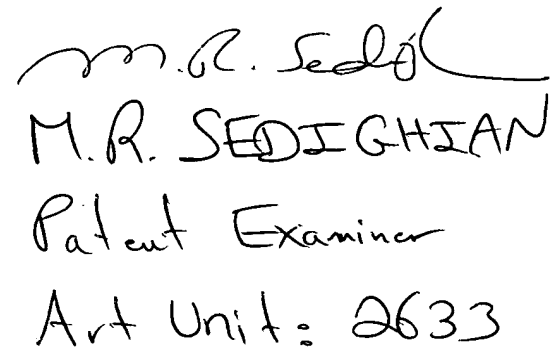 M.R. Sedi
M.R. SEDIGHIAN
Patent Examiner
Art Unit: 2633